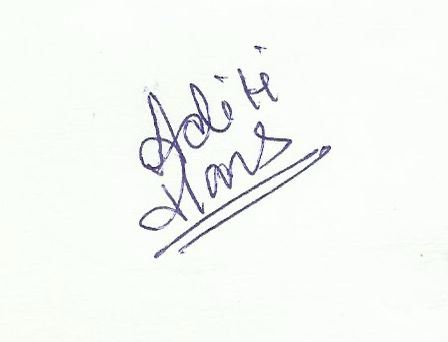 Aditi
Hans